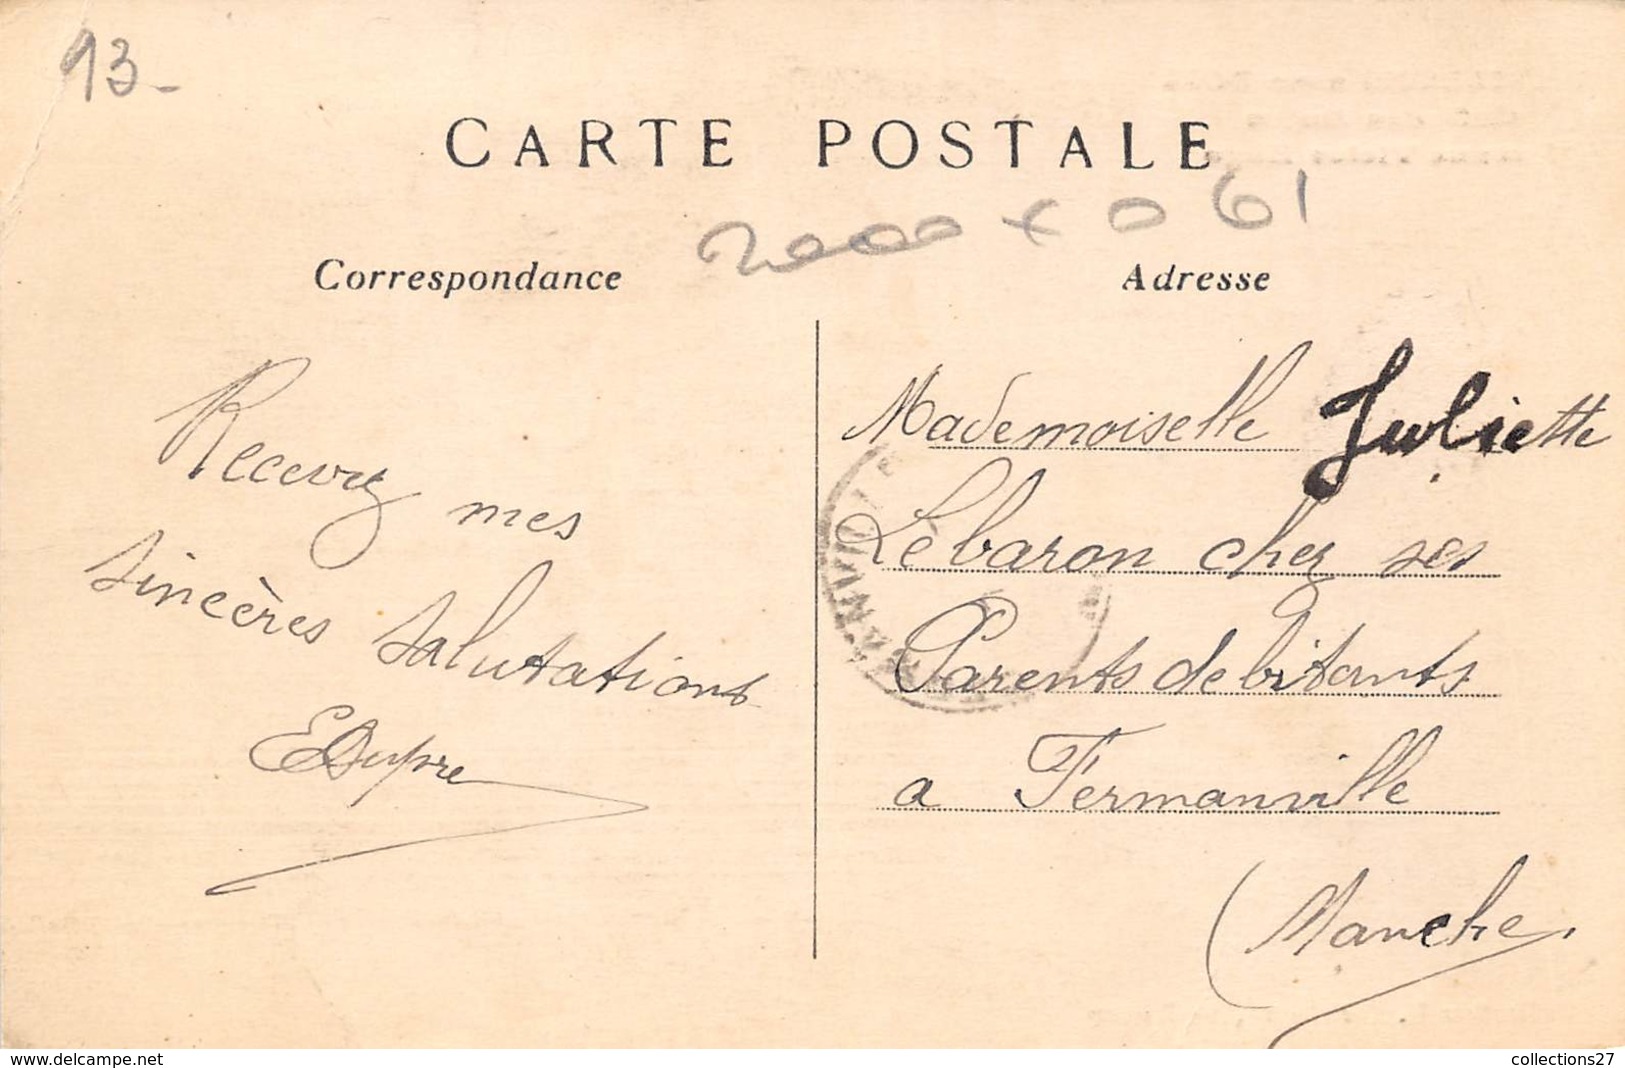 93-
CARTE POSTALE
61
Correspondance
Adresse
Recevez mes
sincères salutations
EDupre
Mademoiselle Juliette
Lebaron chez ses
Parents debitants
a Fermanville
(Manche
www.delcampe.net
collections27